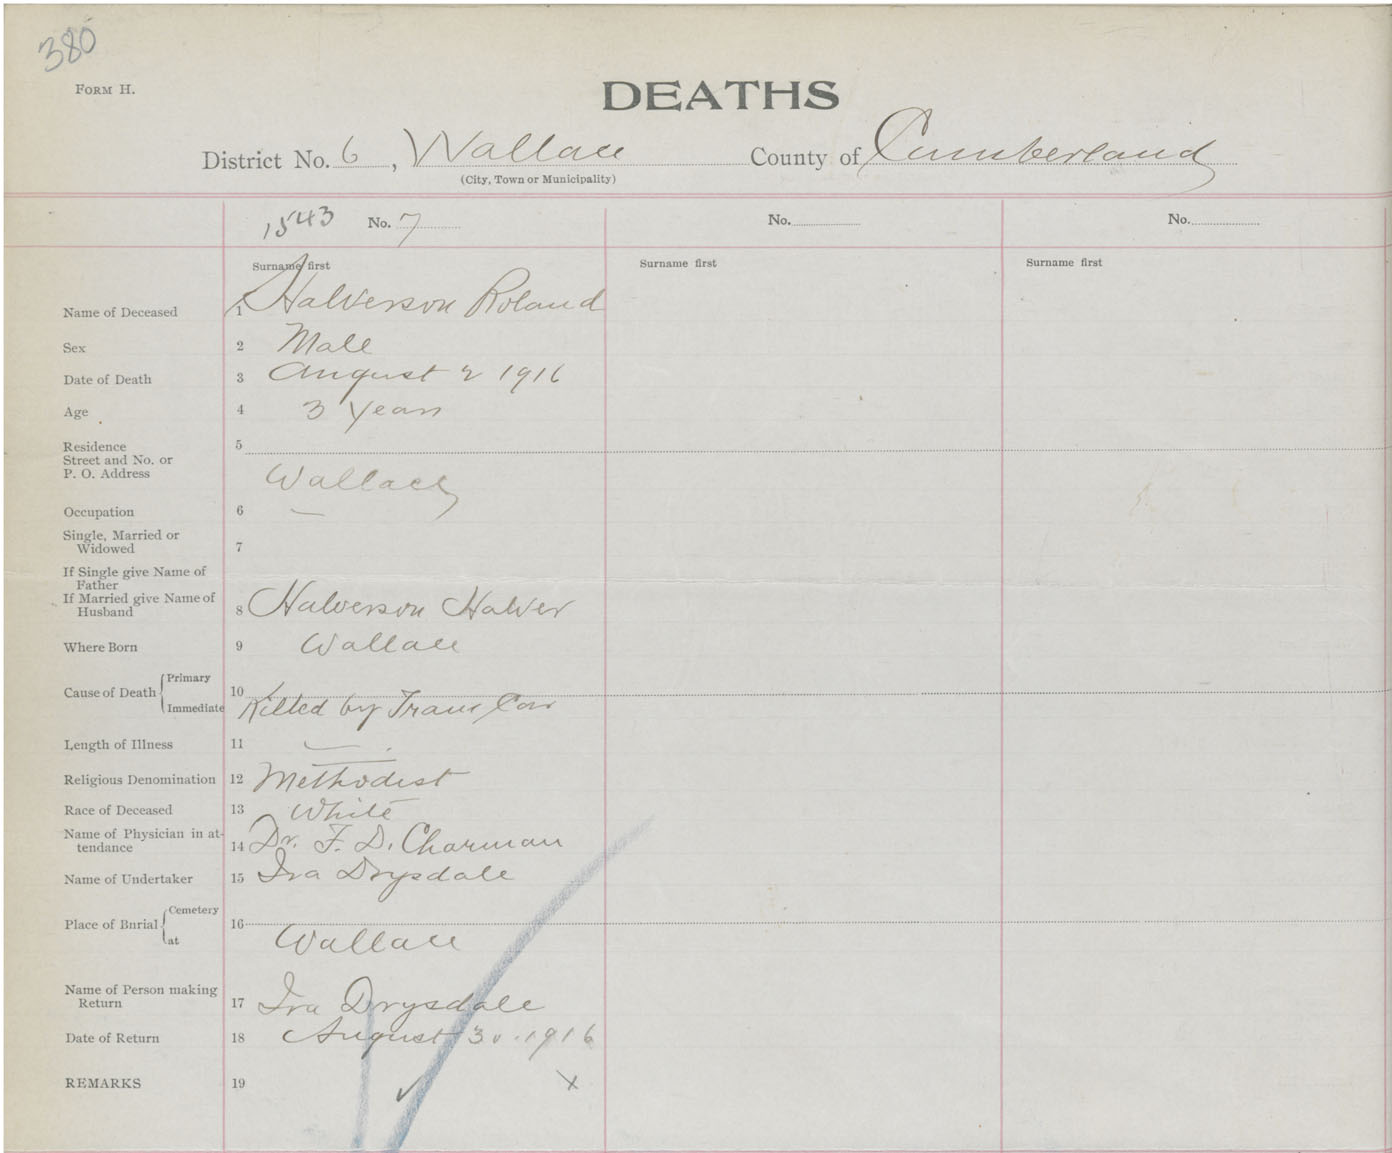 380
FORM H.
DEATHS
District No. 6, Wallace County of Cumberland
(City, Town or Municipality)
1543 No. 7 No. No.
Surname first Surname first Surname first
Name of Deceased 1 Halverson Roland
Sex 2 Male
Date of Death 3 August 2 1916
Age 4 3 Years
Residence 5
Street and No. or
P. O. Address Wallace
Occupation 6 —
Single, Married or
Widowed 7
If Single give Name of
Father
If Married give Name of
Husband 8 Halverson Halver
Where Born 9 Wallace
Cause of Death { Primary 10
Immediate Killed by Tram Car
Length of Illness 11 —
Religious Denomination 12 Methodist
Race of Deceased 13 White
Name of Physician in at-
tendance 14 Dr. F. D. Charman
Name of Undertaker 15 Ira Drysdale
Place of Burial { Cemetery 16
at Wallace
Name of Person making
Return 17 Ira Drysdale
Date of Return 18 August 30. 1916
REMARKS 19 ✓ x